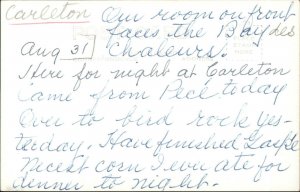 Carleton Our room on front
faces the Bay des
Aug 31 Chaleurs.
Here for night at Carleton
Came from Perce today
Over to bird rock yes-
terday. Have finished Gaspe
Nicest corn I ever ate for
dinner to night.